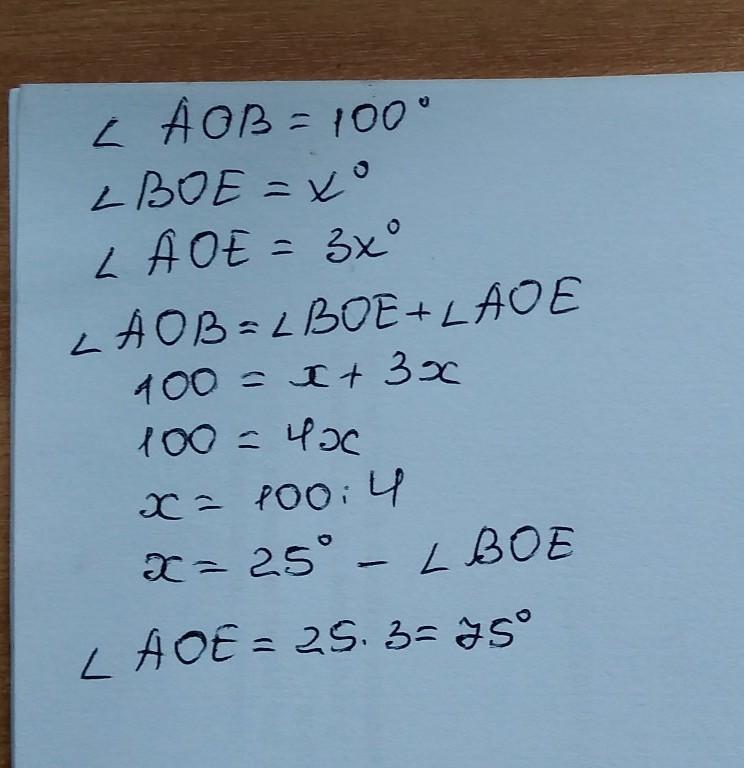 ∠ AOB = 100°
∠BOE = x°
∠ AOE = 3x°
∠AOB = ∠BOE + ∠AOE
100 = x + 3x
100 = 4x
x = 100 : 4
x = 25° - ∠ BOE
∠ AOE = 25 . 3 = 75°